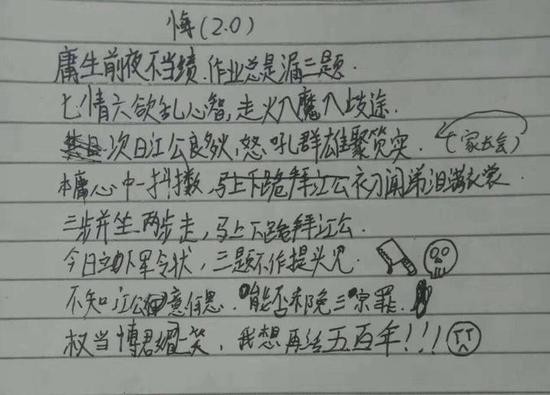 悔(2.0)
庸生前夜不当绩,作业总是漏三题.
七情六欲乱心智,走火入魔入歧途.
次日江公良多狄,怒吼群雄聚策实.(家长会)
本庸心中一抖擞,初闻涕泪满衣裳
三步并坐两步走,马上下跪拜江公.
今日立下军令状,三题不作提头见.
不知江公意何思.能否赦免三宗罪.
权当博君媚一笑,我想再活五百年!!!